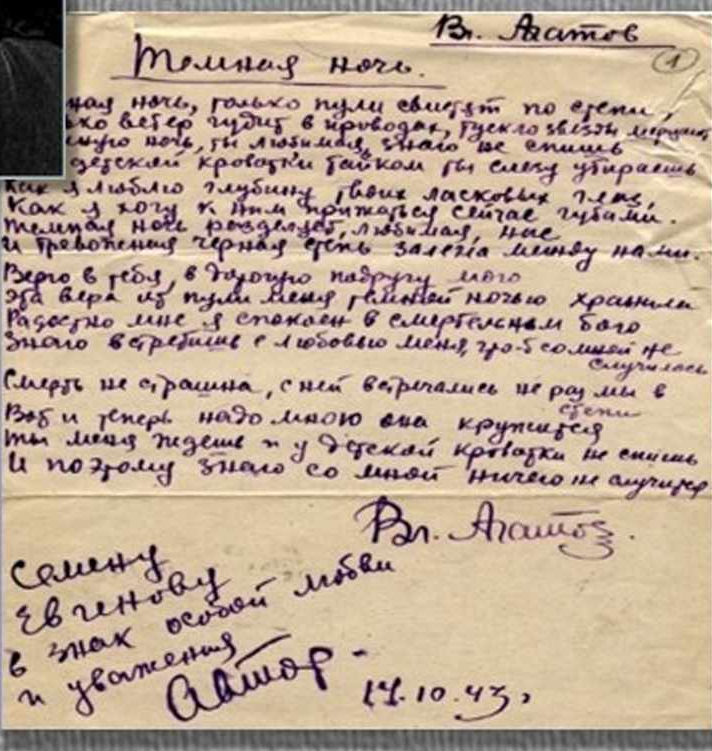 Вл. Агатов
1
Темная ночь.
ная ночь, только пули свистят по степи,
ко ветер гудит в проводах, тускло звезды мерцают
ную ночь, ты любимая, знаю не спишь
детской кроватки тайком ты слезу утираешь
Как я люблю глубину твоих ласковых глаз,
Как я хочу к ним прижаться сейчас губами.
Темная ночь разделяет, любимая, нас
и тревожная черная степь залегла между нами.
Верю в тебя, в дорогую подругу мою
Эта вера от пули меня темной ночью хранила
Радостно мне я спокоен в смертельном бою
Знаю встретишь с любовью меня, что-б со мной не
случилось
Смерть не страшна, с ней встречались не раз мы в
степи
Вот и теперь надо мною она кружится
Ты меня ждешь и у детской кроватки не спишь
И поэтому знаю со мной ничего не случится
Вл. Агатов.
Семену
Евгенову
в знак особой любви
и уважения
Автор
17.10.43